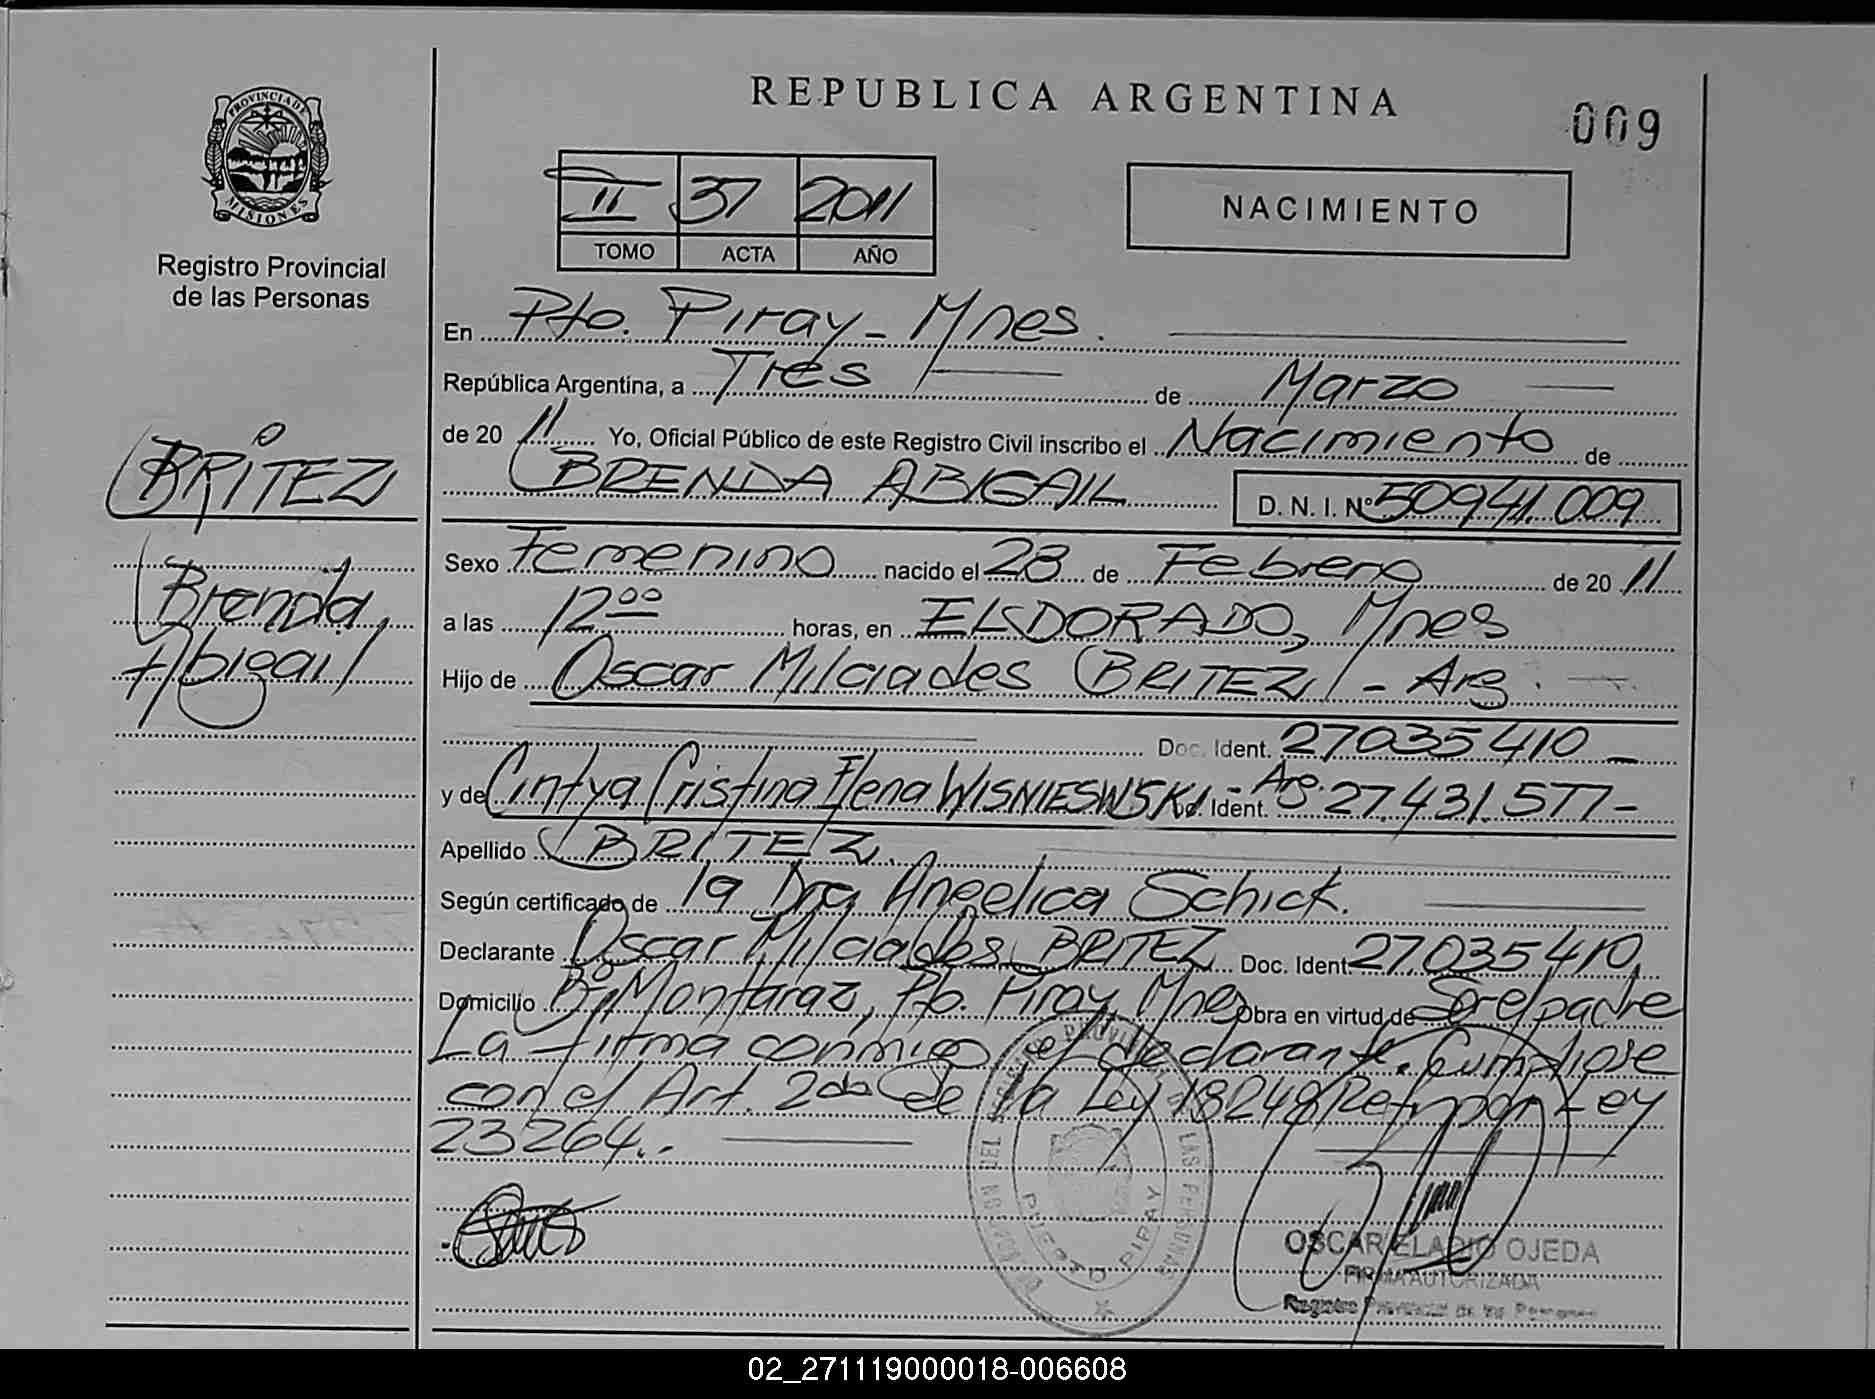 REPUBLICA ARGENTINA
009
PROVINCIA DE
MISIONES
Registro Provincial
de las Personas
II 37 2011
TOMO ACTA AÑO
NACIMIENTO
BRITEZ
Brenda
Abigail
En Pto. Piray - Mnes.
República Argentina, a Tres de Marzo
de 20 11 Yo, Oficial Público de este Registro Civil inscribo el Nacimiento de
BRENDA ABIGAIL D. N. I. Nº 50941.009
Sexo Femenino nacido el 28 de Febrero de 20 11
a las 12 00 horas, en ELDORADO, Mnes
Hijo de Oscar Milciades BRITEZ - Arg.
Doc. Ident. 27035410
y de Cintya Cristina Elena WISNIESWSKI - Arg. Doc. Ident. 27.431.577-
Apellido BRITEZ.
Según certificado de la Dra Angelica Schick.
Declarante Oscar Milciades BRITEZ Doc. Ident. 27.035410,
Domicilio Bº Montaraz, Pto. Piray, Mnes Obra en virtud de Ser el padre
La firma conmigo el declarante. Cumpliose
con el Art. 2do de la Ley 18248 Ref. por Ley
23264.-
PUERTO PIRAY
OSCAR ELADIO OJEDA
FIRMA AUTORIZADA
Registro Provincial de las Personas
02_271119000018-006608